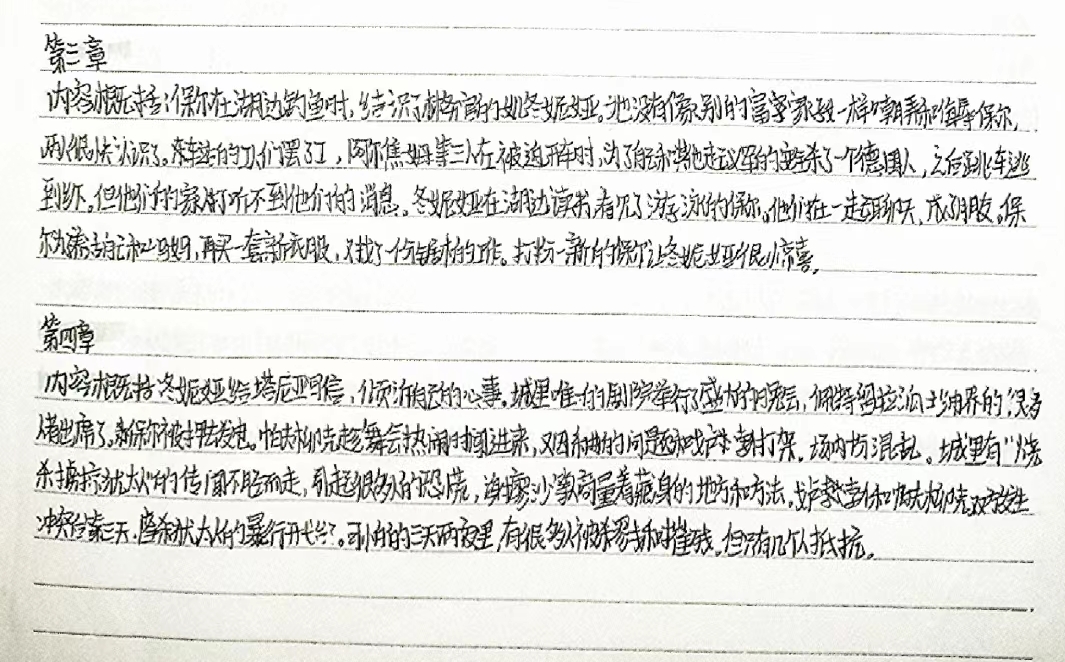 第三章
内容概括:保尔在湖边钓鱼时,结识了林务官的女儿冬妮娅。她没有像别的富家子弟一样嘲弄和侮辱保尔,
两人很快认识了。车站的工人们罢了工,阿尔焦姆等三人在被迫开车时,为了自己和其他起义军的杀了一个德国人,之后跳车逃
到外。但他们的家人打听不到他们的消息。冬妮娅在湖边读书看见了游泳的保尔。他们在一起聊天,成了朋友。保
尔为了自己和妈妈,再买一套新衣服,又找了一份锯木的工作。打扮一新的保尔让冬妮娅很惊喜。
第四章
内容概括:冬妮娅给塔尼亚写信,倾诉自己的心事。城里唯一的剧院举行了盛大的晚会,佩特留拉派上的很多
人都出席了。保尔被发电。帕夫柳克趁舞会热闹时闯进来,又因的问题和打架。场内一片混乱。城里有"烧
杀掳掠犹太人"的传闻不胫而走,引起很多人的恐慌,谢廖沙家商量着藏身的地方和方法。和帕夫柳克双方发生
冲突后第三天,屠杀犹太人的暴行开始了。可怕的三天两夜里,有很多人被和摧残。但只有几个人抵抗。